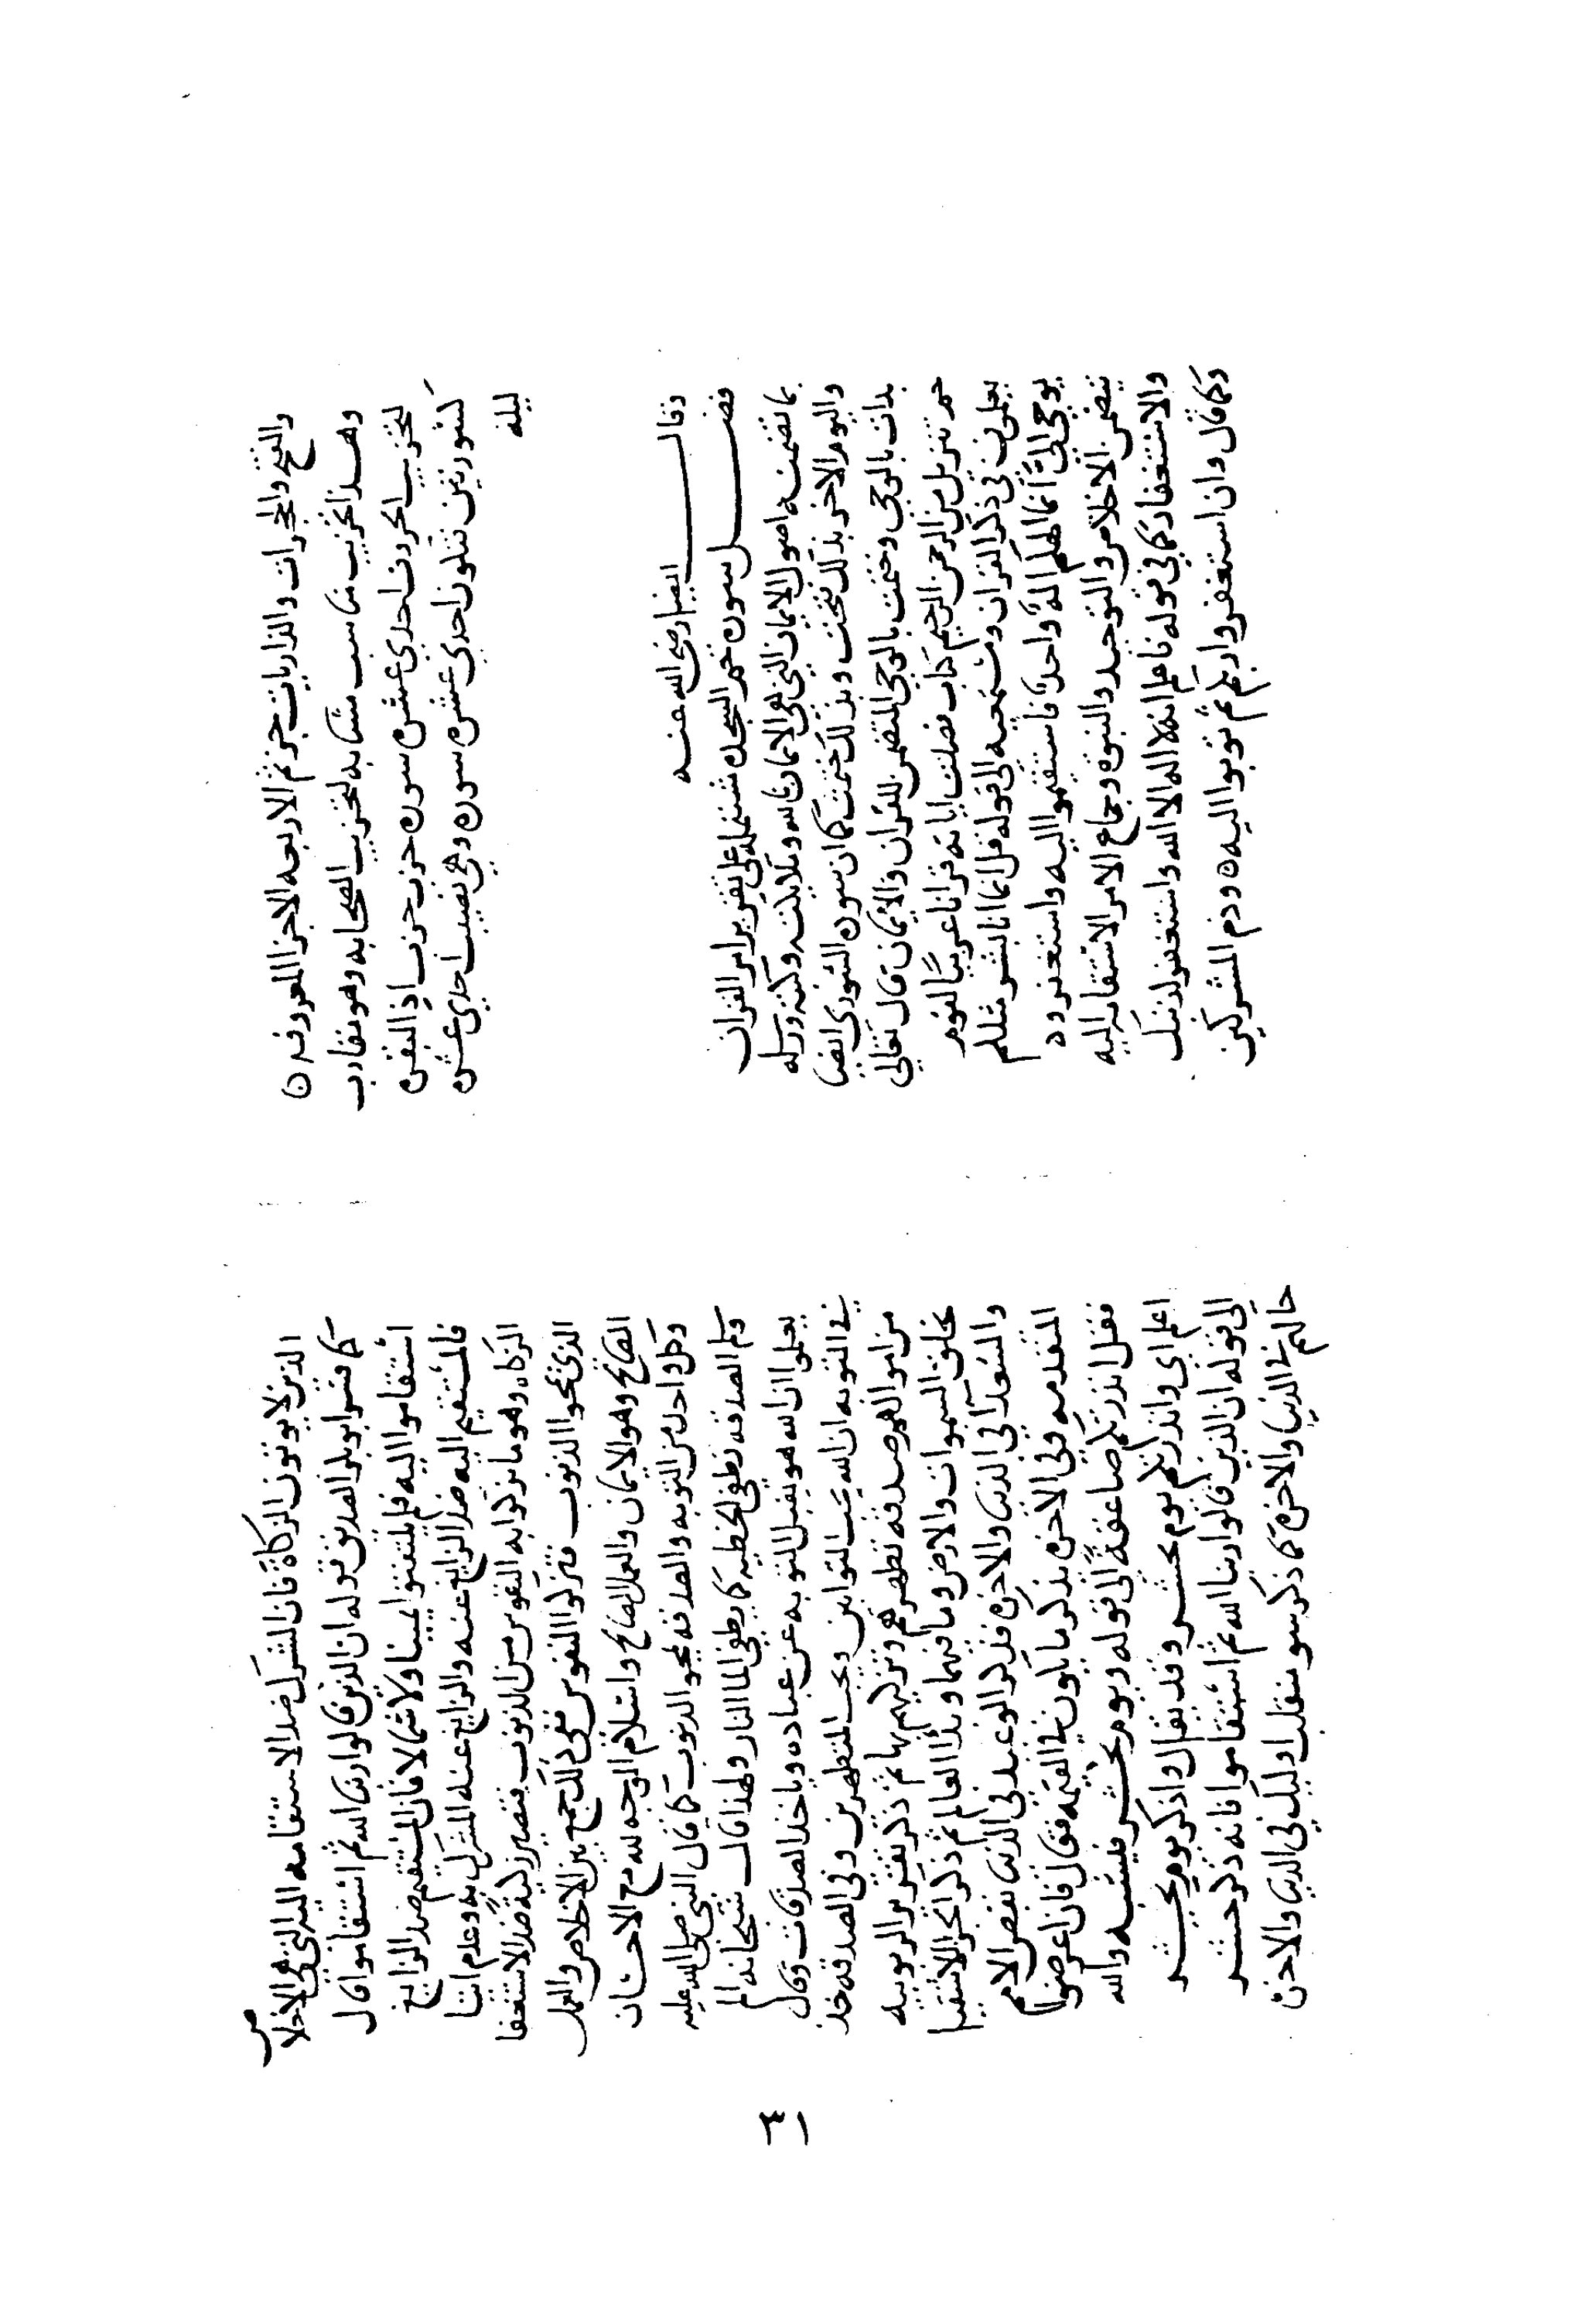 والفتح والحجرات والذاريات جزء ثم الاربعه الاجزا المعروفه ٥
وهذا تحزيب مناسب مشابه لتحزيب الصحابه وهو مقارب
لتحزيب الحروف احدي عشره سوره حزب حزب اذ البقره
كسورتين فتكون احدي عشره سوره وهي نصيب احدي عشره
ليله
وقال ايضا رضي الله عنه
فصل سوره حم السجده مشتمله علي تقرير امر القران
بما تضمنه اصول الايمان التي هي الايمان بالله وملائكته وكتبه ورسله
واليوم الاخر بذلك فتحت وبذلك ختمت كما ان سوره الشوري ايضا
بدات بالوحي وختمت بالوحي المتضمن للقران والايمان قال تعالي
حم تنزيل من الرحمن الرحيم كتاب فصلت اياته قرانا عربيا لقوم
يعلمون في ذكر القران ومستمعيه الي قوله قل انما انا بشر مثلكم
يوحي الي انما الهكم اله واحد فاستقيموا اليه واستغفروه
يتضمن الاخلاص والتوحيد والنبوه وجماع الامر الاستقامه اليه
والاستغفار كما في قوله فاعلم انه لا اله الا الله واستغفر لذنبك
وكما قال وان استغفروا ربكم ثم توبوا اليه ٥ وذم المشركين
الذين لا يوتون الزكاة فان الشرك ضد الاستقامه اليه التي هي الاخلاص
كما فسر ابو بكر الصديق قوله ان الذين قالوا ربنا الله ثم استقاموا قال
استقاموا اليه فلم يلتفتوا يمينا ولا شمالا فان المستقيم ضد الزايغ
فالمستقيم اليه ضد الزايغ عنه والزايغ عنه المشرك به وعدم ايتا
الزكاه وهو ما تزكوا به النفوس من الذنوب فتصير زكية ضد الاستغفا
الذي يمحوا الذنوب فتزكوا النفوس ففي ذلك جمع بين الاخلاص والعمل
الصالح وهو الايمان والعمل الصالح واسلام الوجه لله مع الاحسان
وكل واحد من التوبه والصدقه يمحو الذنوب كما قال النبي صلى الله عليه
وسلم الصدقه تطفي الخطيه كما يطفي الما النار ولهذا قال سبحانه الم
يعلموا ان الله هو يقبل التوبه عن عباده وياخذ الصدقات وقال
في التوبه ان الله يحب التوابين ويحب المتطهرين وفي الصدقه خذ
من اموالهم صدقه تطهرهم وتزكيهم بها ثم ذكر تقرير الربوبيه
بخلق السموات والارض وما فيهما وبدا العالم ثم ذكر الاشقيا
والسعدا في الدنيا والاخره فذكر الوعيد في الدنيا بقصص الامم
المتقدمه وفي الاخره بذكر ما يكون في القيمه فقال فان اعرضوا
فقل انذرتكم صاعقة الي قوله ويوم يحشر والله
اعلم اي وانذرتكم يوم يحشر وقد يقال واذكر يوم يحشر
الي قوله ان الذين قالوا ربنا الله ثم استقاموا فانه ذكر حشر
حالهم في الدنيا والاخرة كما ذكر سو منقلب اوليك في الدنيا والاخره